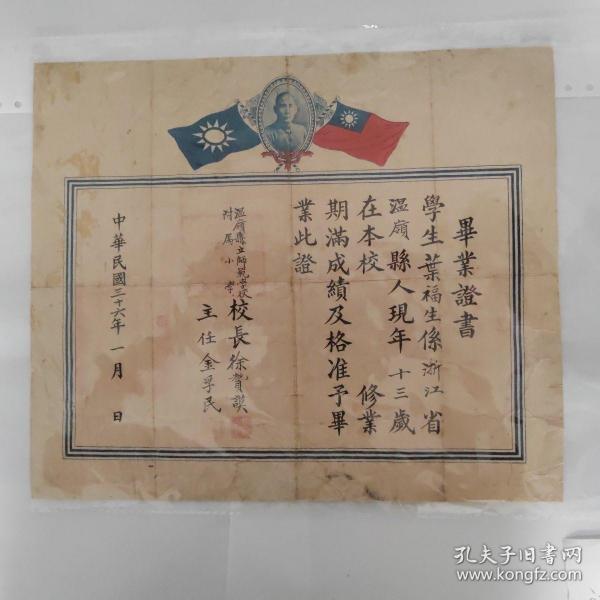 畢業證書
學生葉福生係浙江省
溫嶺縣人現年十三歲
在本校 修業
期滿成績及格准予畢
業此證
溫嶺縣立師範學校
附屬小學
校長徐賀謨
主任金孚民
中華民國三十六年一月 日
孔夫子旧书网
www.kongfz.com